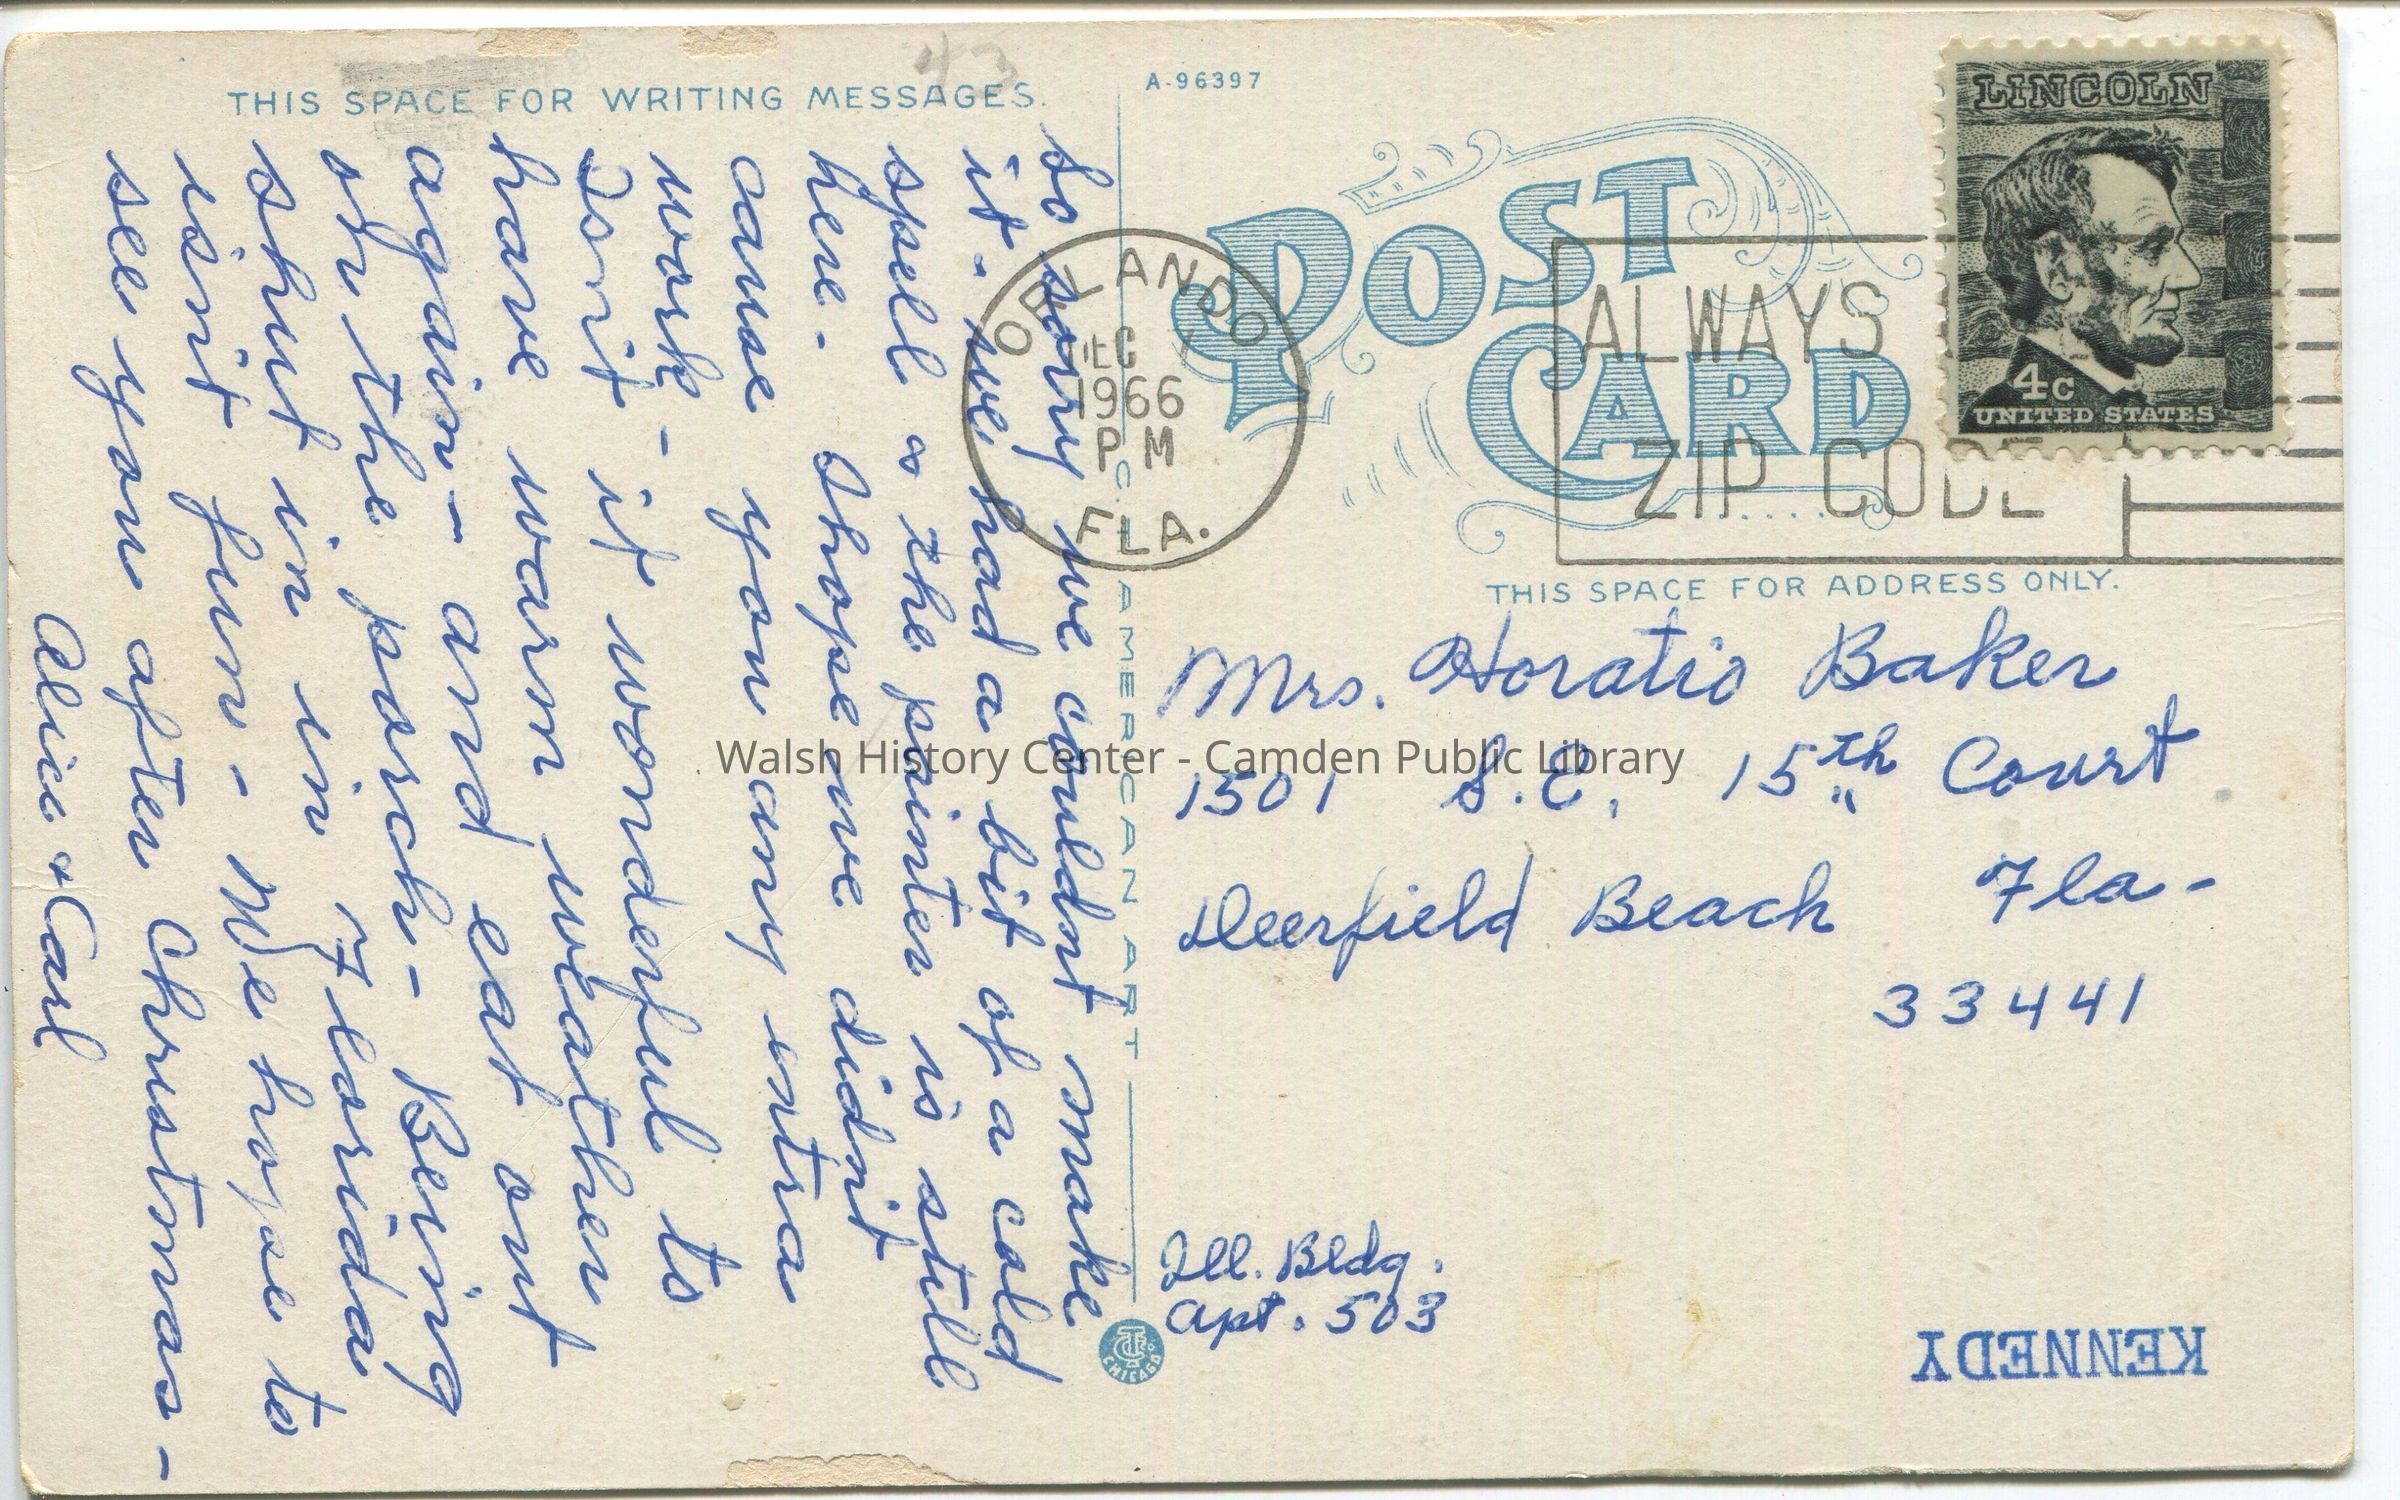 THIS SPACE FOR WRITING MESSAGES.
43
A-96397
POST CARD
LINCOLN
4c
UNITED STATES
ORLANDO
EC
1966
PM
FLA.
ALWAYS
ZIP CODE
THIS SPACE FOR ADDRESS ONLY.
So sorry we couldnt make
it - we had a bit of a cold
spell & the painter is still
here. I hope we didnt
cause you any extra
work - 
Isnt it wonderful to
have warm weather
again - and eat out
on the porch - Being
shut in in Florida
isnt fun - We hope to
see you after Christmas -
Alice & Carl
Mrs. Horatio Baker
1501 S.E. 15th Court
Deerfield Beach Fla-
33441
Ill. Bldg.
Apt. 503
KENNEDY
C. AMERICAN ART
CHICAGO
Walsh History Center - Camden Public Library